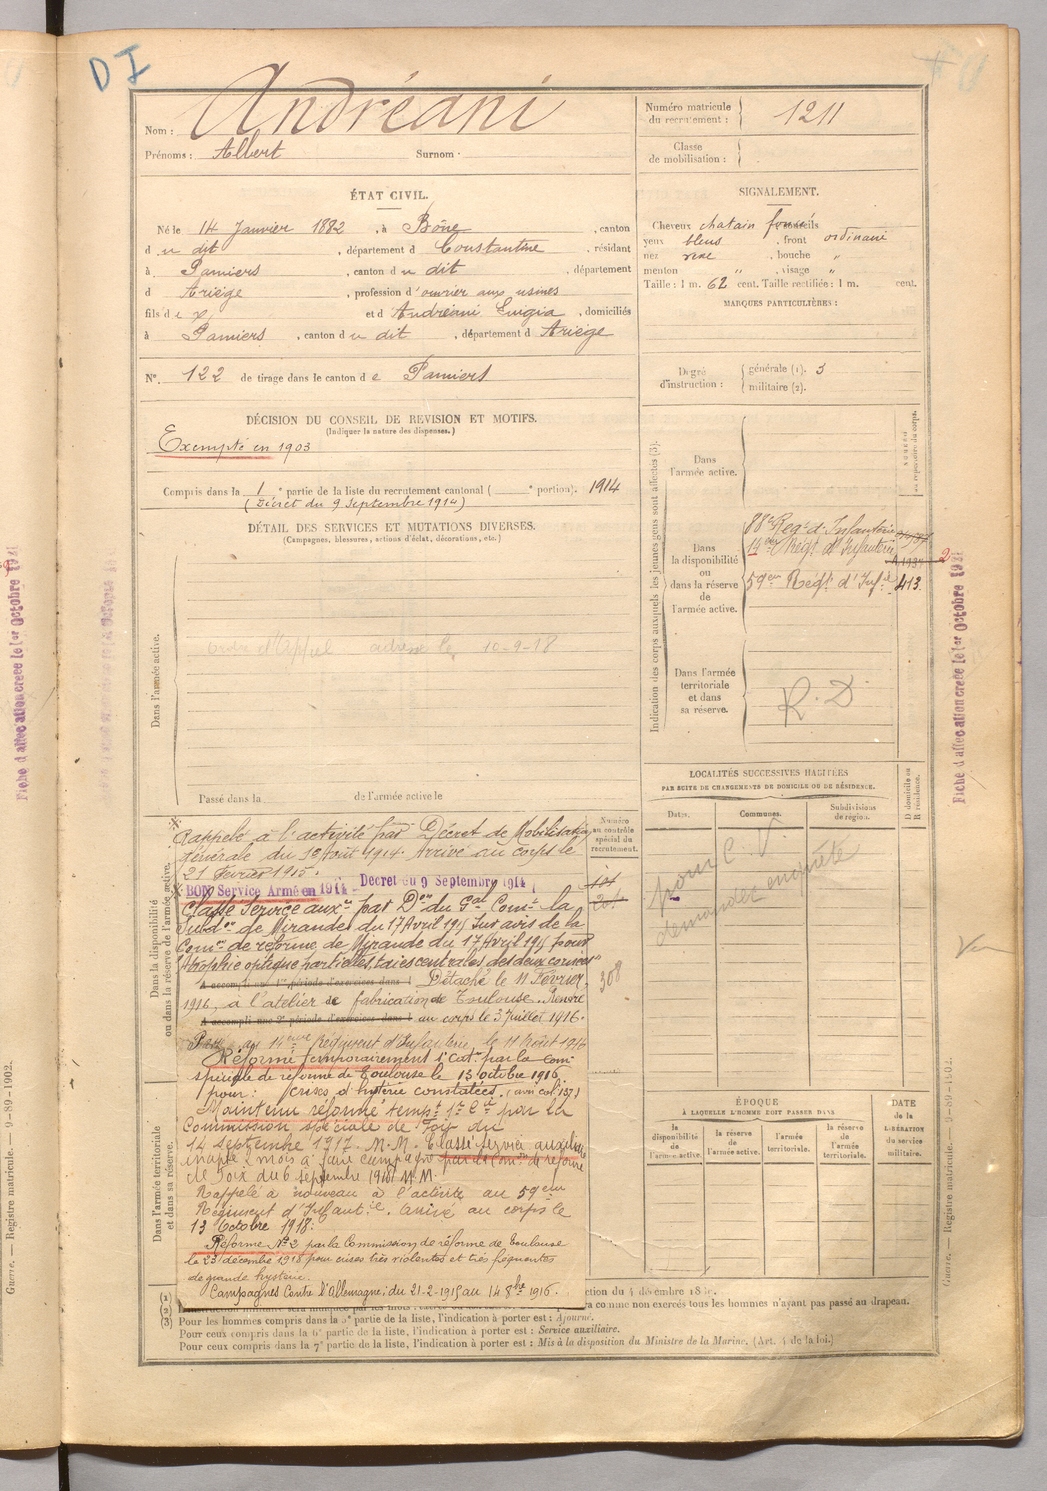 D I
Nom : Andréani
Prénoms : Albert Surnom :
Numéro matricule du recrutement : 1211
Classe de mobilisation :
ÉTAT CIVIL.
Né le 14 Janvier 1882, à Bône, canton
d u dit, département d Constantine, résidant
à Pamiers, canton d u dit, département
d Ariège, profession d'ouvrier aux usines
fils d e X et d Andréani Luigia, domiciliés
à Pamiers, canton d u dit, département d Ariège
N°. 122 de tirage dans le canton d e Pamiers
SIGNALEMENT.
Cheveux chatain foncé sourcils
yeux bleus, front ordinaire
nez, bouche "
menton ", visage "
Taille : 1 m. 62 cent. Taille rectifiée : 1 m. cent.
MARQUES PARTICULIÈRES :
Degré d'instruction : générale (1). 3
militaire (2).
DÉCISION DU CONSEIL DE REVISION ET MOTIFS.
(Indiquer la nature des dispenses.)
Exempté en 1903
Compris dans la 1e partie de la liste du recrutement cantonal ( e portion). 1914
(Décret du 9 Septembre 1914)
DÉTAIL DES SERVICES ET MUTATIONS DIVERSES.
(Campagnes, blessures, actions d'éclat, décorations, etc.)
Dans l'armée active.
Ordre d'Appel adressé le 10-9-18
Passé dans la de l'armée active le
Indication des corps auxquels les jeunes gens sont affectés (3).
NUMÉRO au répertoire du corps.
Dans l'armée active.
Dans la disponibilité ou dans la réserve de l'armée active.
88e Regt d'Infanterie
14ème Régt d'Infanterie
59em Régt d'Infie 413
Dans l'armée territoriale et dans sa réserve.
R. D.
Fiche d'affectation créée le 1er Octobre 1931
Fiche d'affectation créée le 1er Octobre 1931
LOCALITÉS SUCCESSIVES HABITÉES
PAR SUITE DE CHANGEMENTS DE DOMICILE OU DE RÉSIDENCE.
Dates. Communes. Subdivisions de région.
D domicile ou R résidence.
pour C. V.
demander enquête
Numéro au contrôle spécial du recrutement.
308
Dans la disponibilité ou dans la réserve de l'armée active.
Rappelé à l'activité par Décret de Mobilisation
Générale du 1er Août 1914. Arrivé au corps le
21 Février 1915.
BON Service Armé en 1914 - Décret du 9 Septembre 1914
Classé Service auxre par Don du Gal Comt la
Subdon de Mirande du 17 Avril 1915 sur avis de la
Comon de réforme de Mirande du 17 Avril 1915 pour
Atrophie optique partielles, taies centrales des deux cornées
A accompli une 1re période d'exercices dans l Détaché le 11 Février
1916, à l'atelier de fabrication de Toulouse. Rentré
A accompli une 2e période d'exercices dans l au corps le 3 Juillet 1916.
Passé au 14ème Régiment d'Infanterie, le 11 Août 1916
Réformé temporairement 1e Cat. par la com
spéciale de réforme de Toulouse le 13 octobre 1916
pour : crises d'hystérie constatées.
Maintenu réformé tempe 1re Cie par la
Commission spéciale de Foix du
14 septembre 1917. N.M. Classé service auxiliaire
inapte mois à faire campagne par la Comon de réforme
de Foix du 6 septembre 1918 N.M.
Rappelé à nouveau à l'activité au 59em
Régiment d'Infantie. Arrivé au corps le
13 Octobre 1918.
Réformé N°2 par la Commission de réforme de Toulouse
le 23 décembre 1918 pour crises très violentes et très fréquentes
de grande hystérie.
Campagnes Contre l'Allemagne : du 21-2-1915 au 14 8bre 1916.
Dans l'armée territoriale et dans sa réserve.
ÉPOQUE
À LAQUELLE L'HOMME DOIT PASSER DANS
la disponibilité de l'armée active. la réserve de l'armée active. l'armée territoriale. la réserve de l'armée territoriale.
DATE de la LIBÉRATION du service militaire.
(1)
(2)
(3)
Pour les hommes compris dans la 5e partie de la liste, l'indication à porter est : Ajourné.
Pour ceux compris dans la 6e partie de la liste, l'indication à porter est : Service auxiliaire.
Pour ceux compris dans la 7e partie de la liste, l'indication à porter est : Mis à la disposition du Ministre de la Marine. (Art. 4 de la loi.)
comme non exercés tous les hommes n'ayant pas passé au drapeau.
Guerre. — Registre matricule. — 9-89-1902.
Guerre. — Registre matricule. — 9-89-1902.